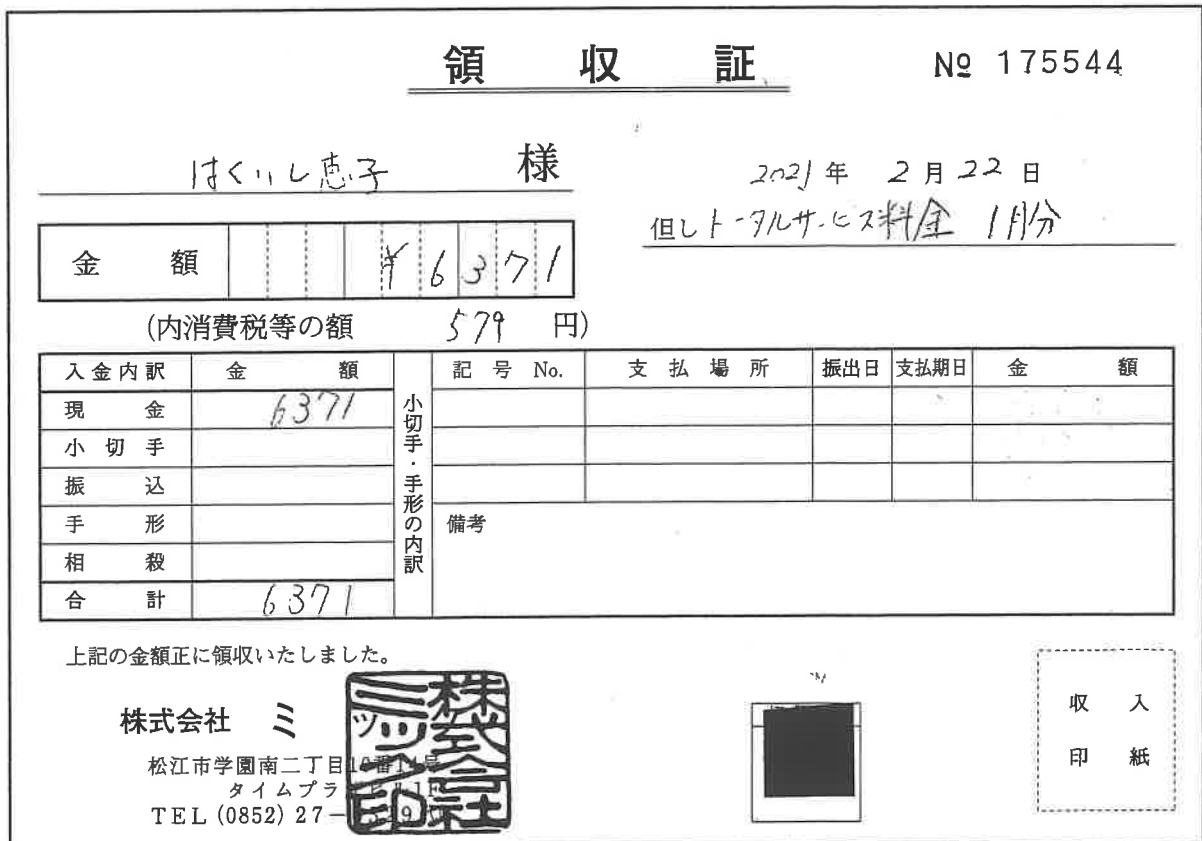 領収証
No 175544
はくいし恵子 様
2021年 2月22日
但しトータルサービス料金 1月分
金額 ¥6371
(内消費税等の額 579 円)
入金内訳 金額
現金 6371
小切手
振込
手形
相殺
合計 6371
小切手・手形の内訳
記号 No. 支払場所 振出日 支払期日 金額
備考
上記の金額正に領収いたしました。
株式会社 ミ
松江市学園南二丁目
タイムプラ
TEL (0852) 27-
収入
印紙